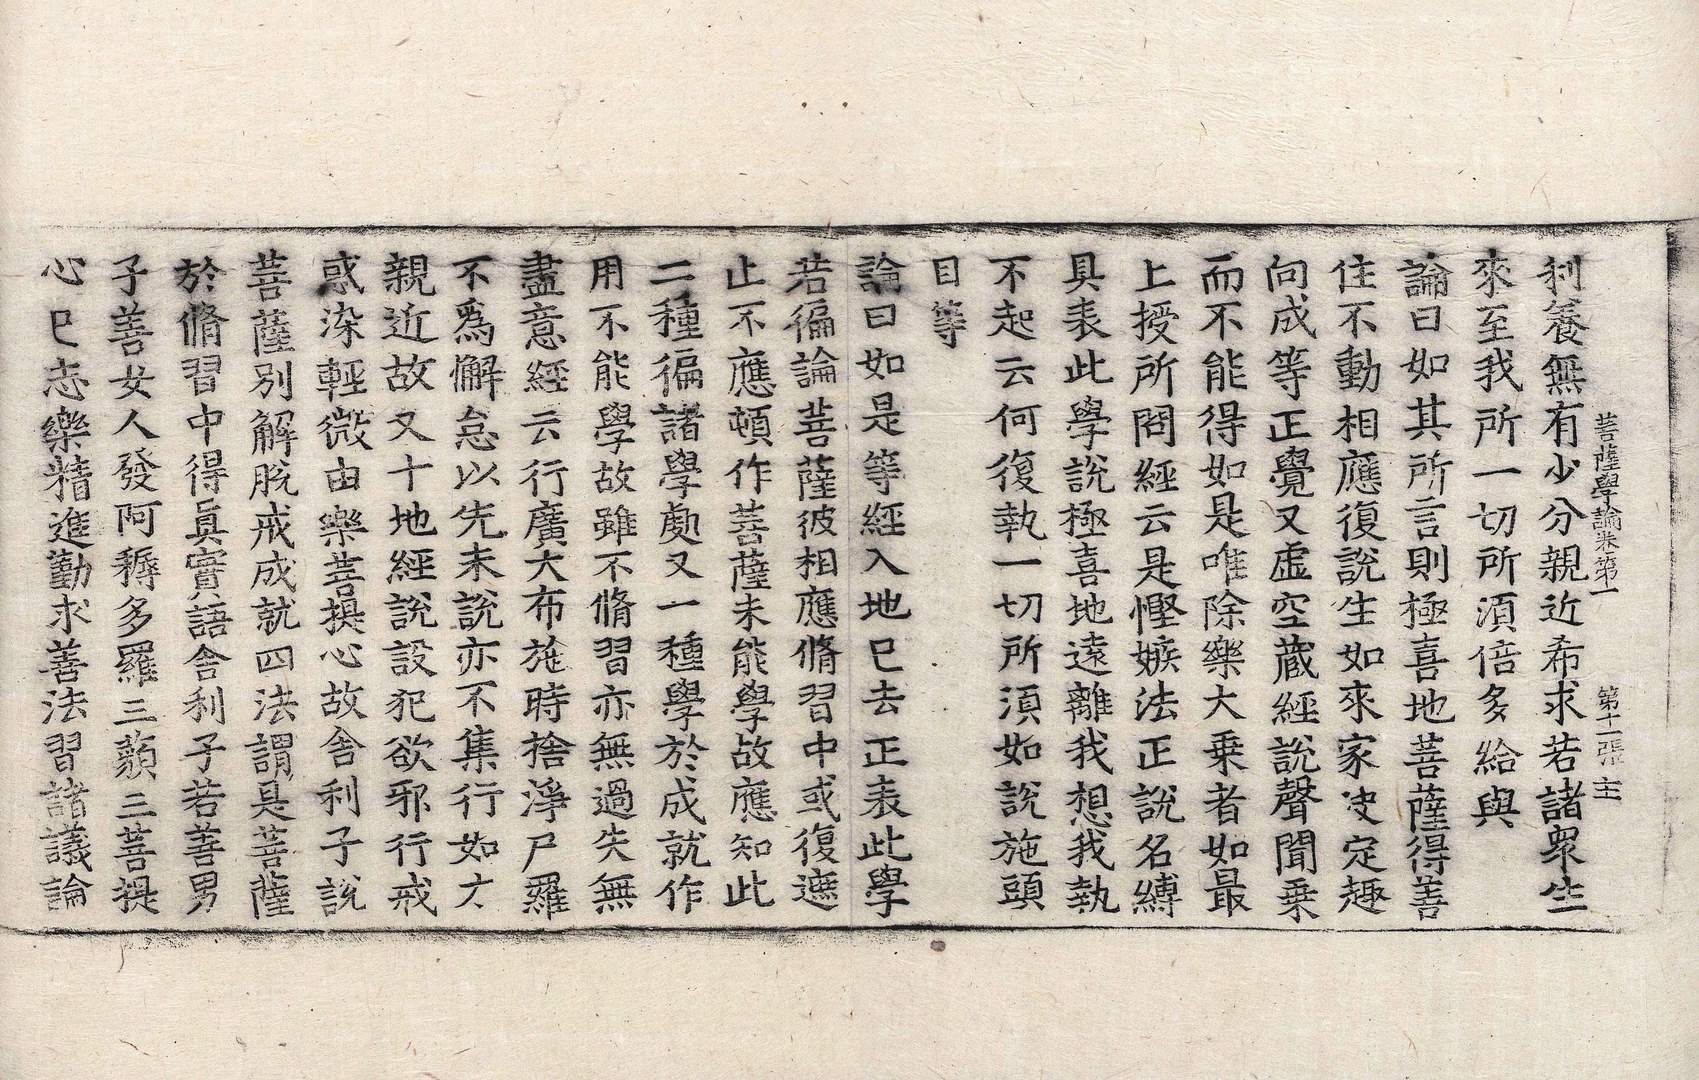 菩薩學論卷第一　第十一張　主
利養無有少分親近希求若諸衆生
來至我所一切所須倍多給與
論曰如其所言則極喜地菩薩得善
住不動相應復說生如來家决定趣
向成等正覺又虛空藏經說聲聞乗
而不能得如是唯除樂大乗者如最
上授所問經云是慳嫉法正說名縛
具表此學說極喜地遠離我想我執
不起云何復執一切所須如說施頭
目等
論曰如是等經入地已去正表此學
若徧論菩薩彼相應脩習中或復遮
止不應頓作菩薩未能學故應知此
二種徧諸學處又一種學於成就作
用不能學故雖不脩習亦無過失無
盡意經云行廣大布施時捨淨尸羅
不爲懈怠以先未說亦不集行如十
親近故又十地經說設犯欲邪行戒
惑染輕微由樂菩提心故舍利子說
菩薩別解脫戒成就四法謂是菩薩
於脩習中得眞實語舍利子若善男
子善女人發阿耨多羅三藐三菩提
心已志樂精進勤求善法習諸議論